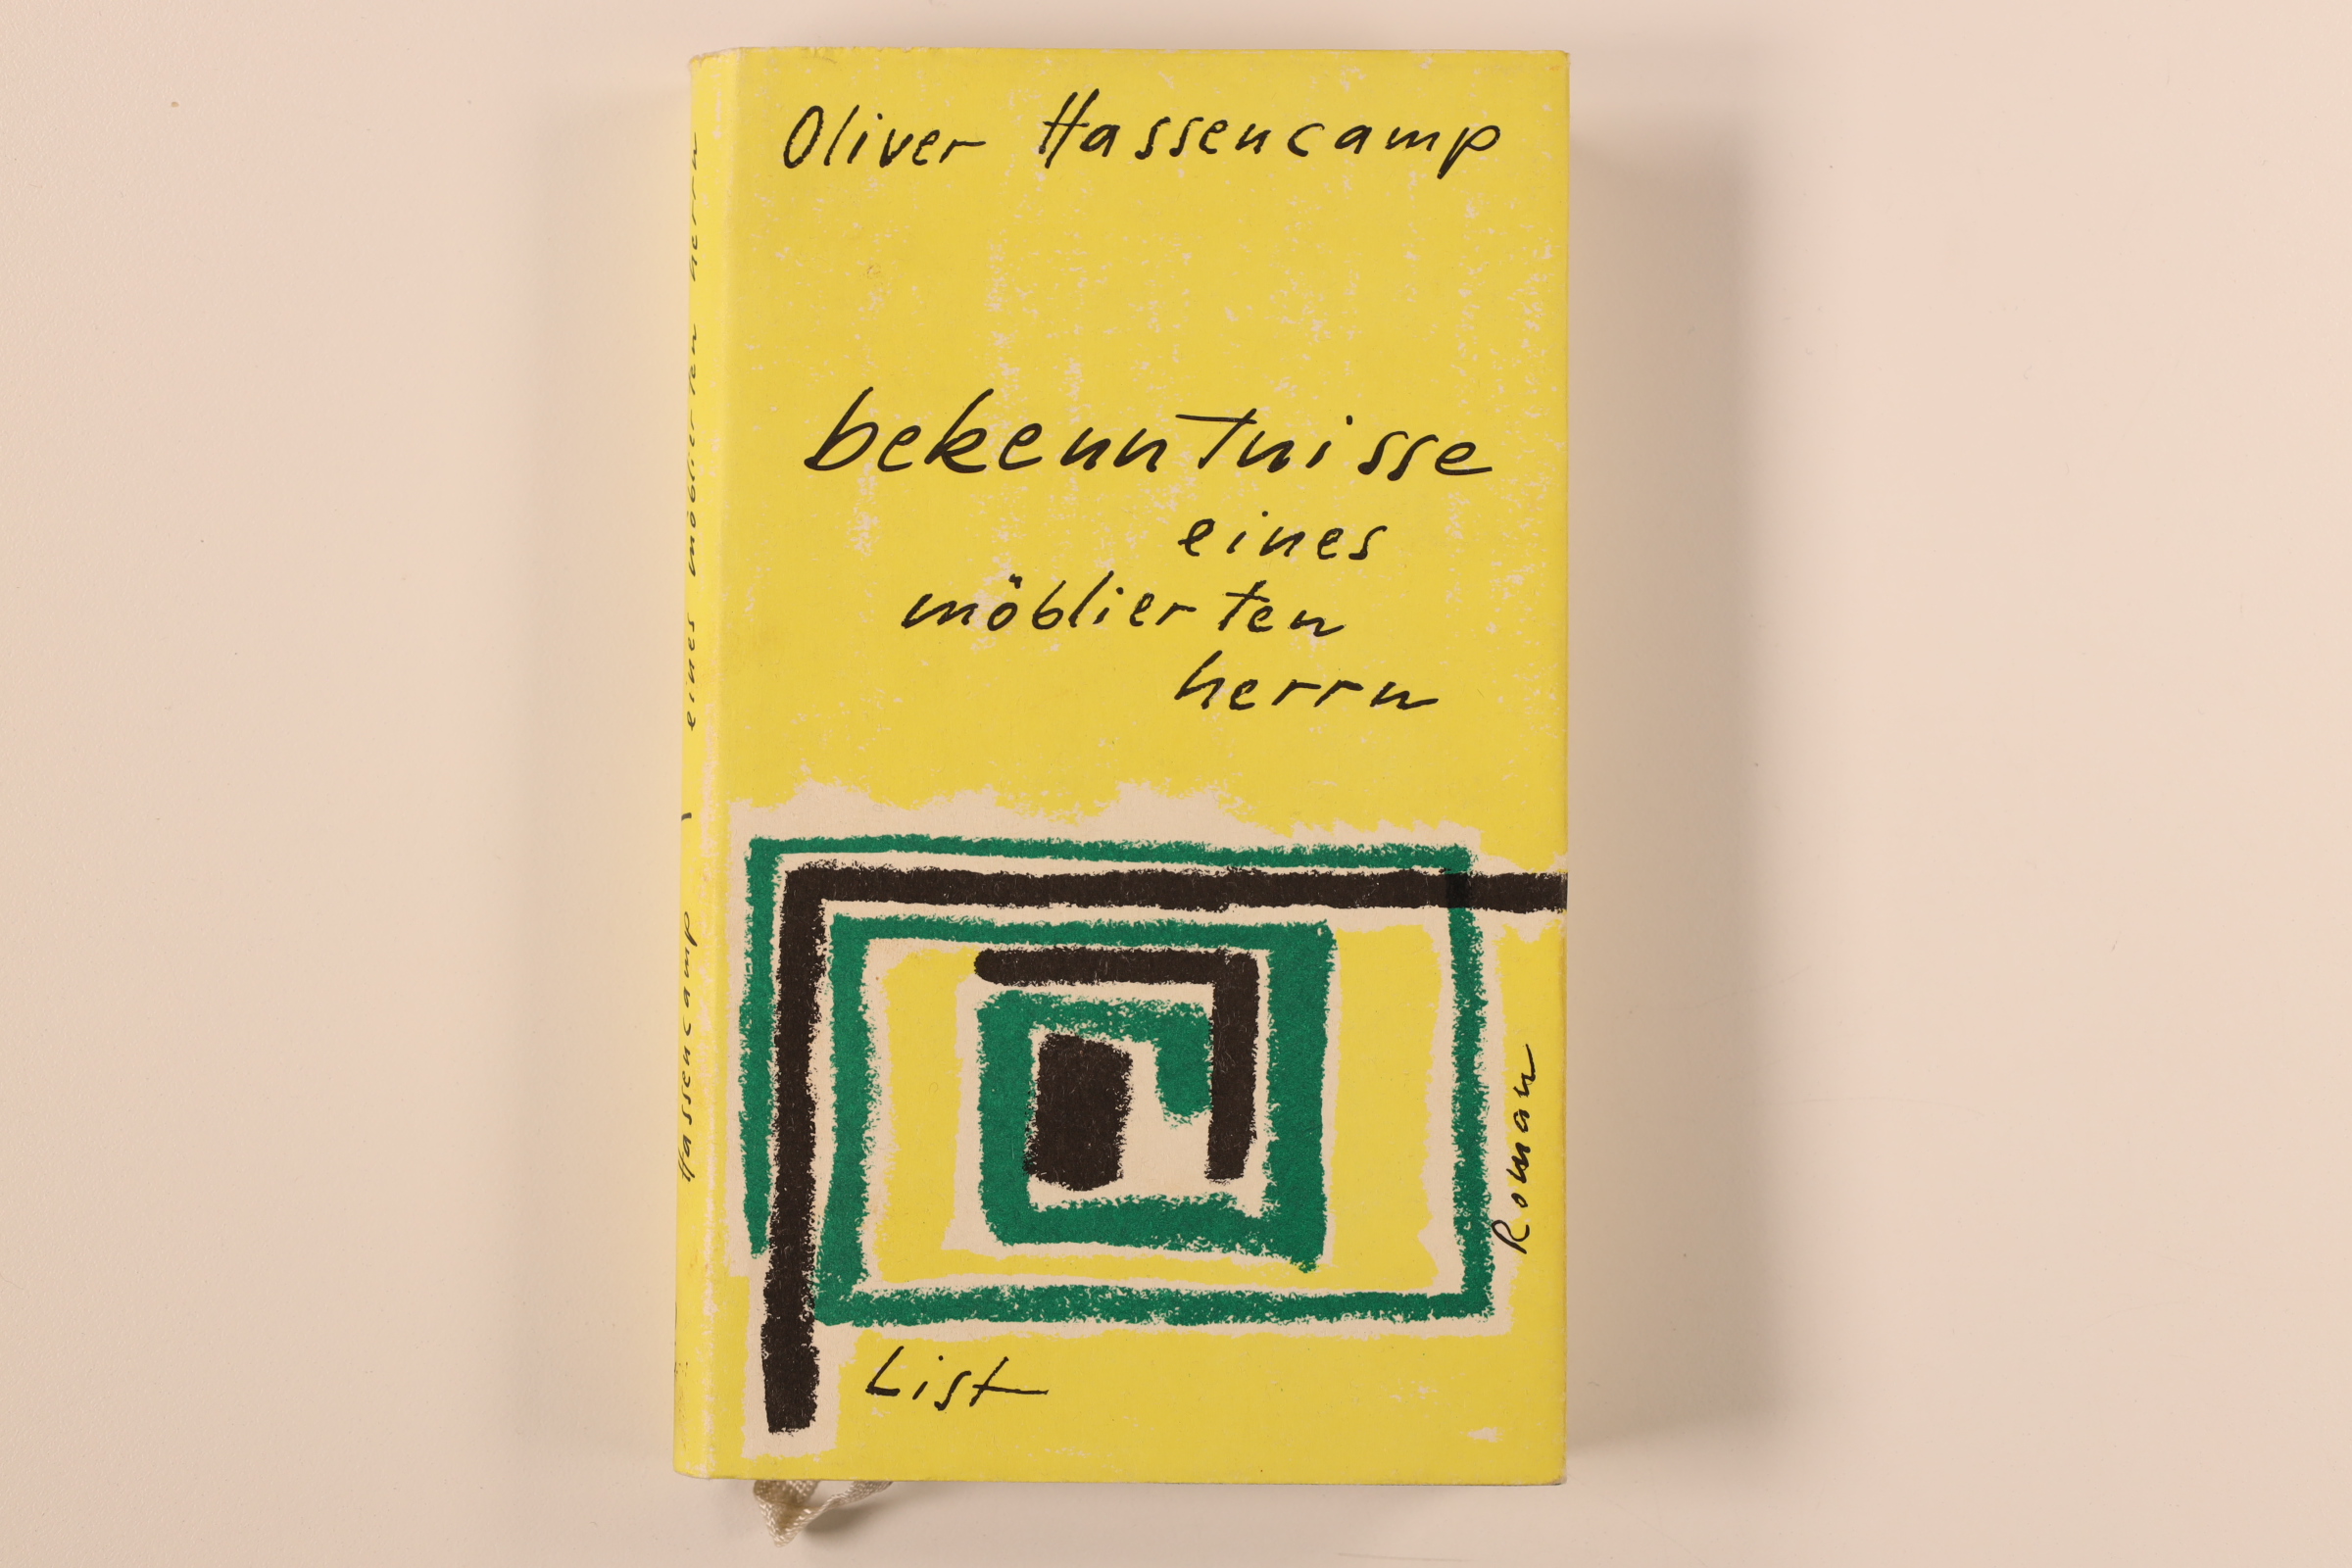 Oliver Hassencamp
bekenntnisse
eines
möblierten
herrn
Roman
List
Hassencamp / eines möblierten herrn